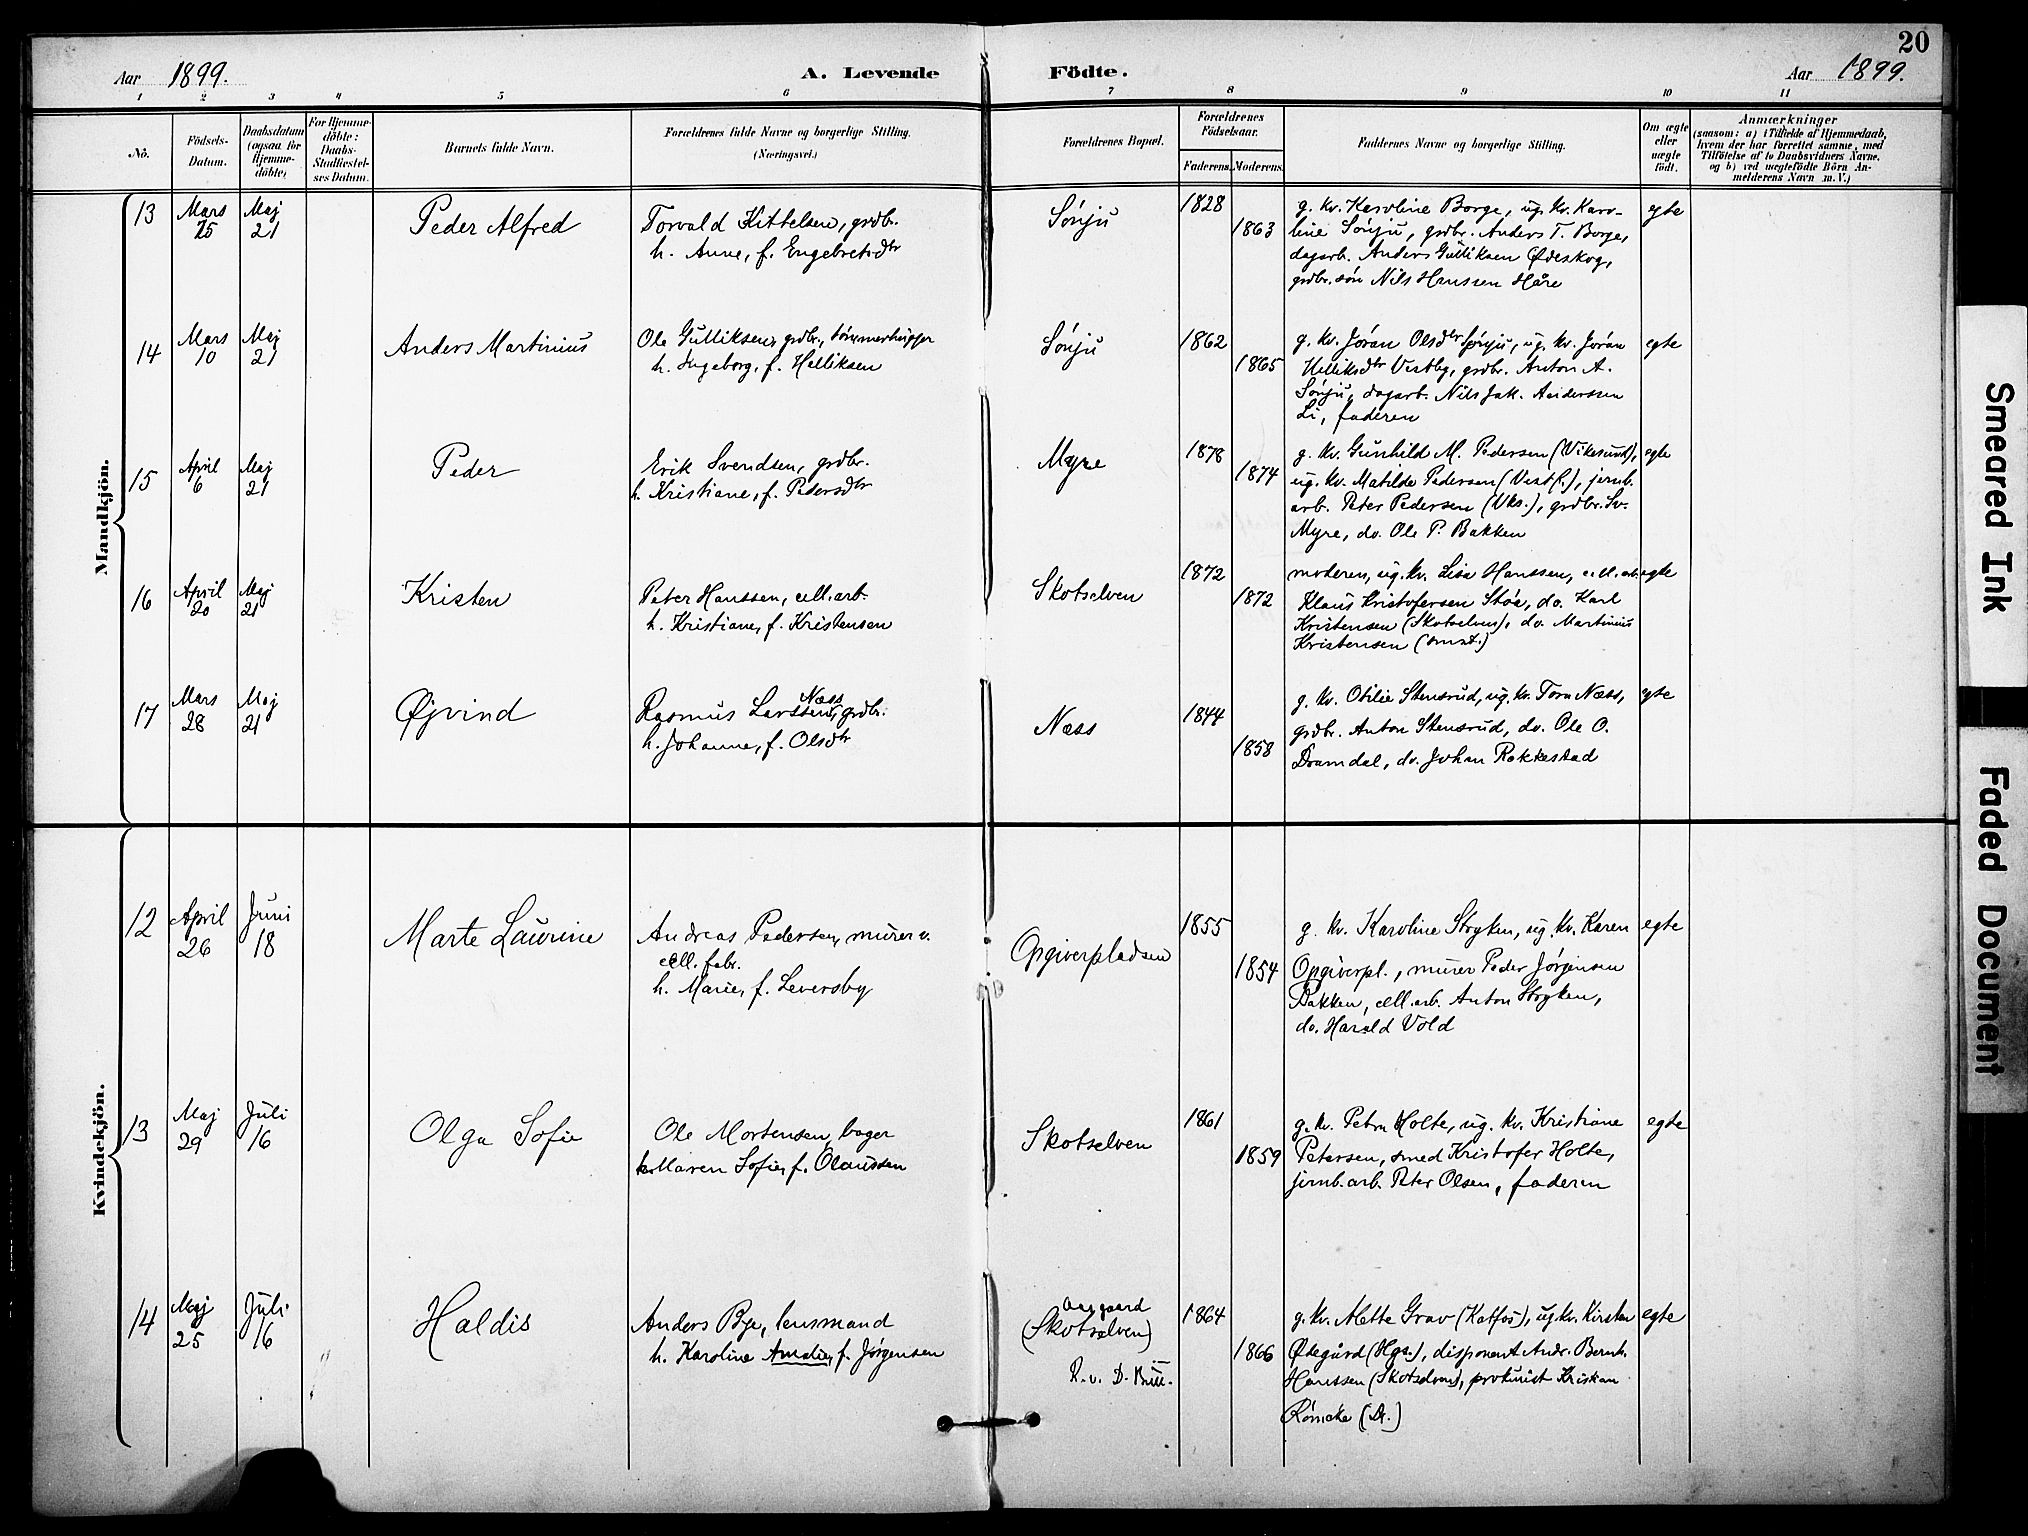 20
Aar 1899.
A. Levende Födte.
Aar 1899.
1 2 3 4 5 6 7 8 9 10 11
No.
Födsels-
Datum.
Daabsdatum
(ogsaa for
Hjemme-
döbte)
For Hjemme-
döbte:
Daabs-
Stadfæstel-
ses Datum.
Barnets fulde Navn.
Forældrenes fulde Navne og borgerlige Stilling.
(Næringsvei.)
Forældrenes Bopæl.
Forældrenes
Födselsaar.
Faderens.
Moderens.
Faddernes Navne og borgerlige Stilling.
Om ægte
eller
uægte
födt.
Anmærkninger
(saasom: a) i Tilfælde af Hjemmedaab,
hvem der har forrettet samme, med
Tilföielse af to Daabsvidners Navne,
og b) ved uægtefödte Börn An-
melderens Navn m. V.)
Mandkjön.
13
Mars
25
Maj
21
Peder Alfred
Torvald Kittelsen, grdbr.
h. Anne, f. Engebretsdtr
Sønju
1828
1863
g. kv. Karoline Borge, ug. kv. Karo-
line Sønju, grdbr. Anders T. Borge,
dagarb. Anders Gulliksen Ødeskog,
grdbr. søn Nils Hanssen Håre
egte
14
Mars
10
Maj
21
Anders Martinius
Ole Gulliksen, grdbr., tømmerhugger
h. Ingeborg, f. Helliksen
Sønju
1862
1865
g. kv. Jøran Olsdtr Sønju, ug. kv. Jøran
Helliksdtr Vestby, grdbr. Anton A.
Sønju, dagarb. Nils Jak. Anderssen
Li, faderen
egte
15
April
6
Maj
21
Peder
Erik Svendsen, grdbr.
h. Kristiane, f. Pedersdtr
Myre
1878
1874
g. kv. Gunhild M. Pedersen (Vikesund),
ug. kv. Matilde Pedersen (Vestf.), jernb.
arb. Peter Pedersen (Vks.), grdbr. Sv.
Myre, do. Ole P. Bakken
egte
16
April
20
Maj
21
Kristen
Peter Hanssen, cell. arb.
h. Kristiane, f. Kristensen
Skotselven
1872
1872
moderen, ug. kv. Lisa Hanssen, cell. arb.
Klaus Kristofersen Støa, do. Karl
Kristensen (Skotselven), do. Martinius
Kristensen (smst.)
egte
17
Mars
28
Maj
21
Øjvind
Rasmus Larssen Næss, grdbr.
h. Johanne, f. Olsdtr
Næss
1844
1858
g. kv. Otilie Stensrud, ug. kv. Tora Næss,
grdbr. Anton Stensrud, do. Ole O.
Dramdal, do. Johan Rokkestad
egte
Kvindekjön.
12
April
26
Juni
18
Marte Laurine
Andreas Pedersen, murer v.
cell. fabr.
h. Marie, f. Leversby
Opgiverpladsen
1855
1854
g. kv. Karoline Stryken, ug. kv. Karen
Opgiverpl., murer Peder Jørgensen
Bakken, cell. arb. Anton Stryken,
do. Harald Vold
egte
13
Maj
29
Juli
16
Olga Sofie
Ole Mortensen, bager
h. Maren Sofie, f. Olaussen
Skotselven
1861
1859
g. kv. Petra Holte, ug. kv. Kristiane
Petersen, smed Kristofer Holte,
jernb. arb. Peter Olsen, faderen
egte
14
Maj
25
Juli
16
Haldis
Anders Bye, lensmand
h. Karoline Amalie, f. Jørgensen
Aasgaard
(Skotselven)
1864
1866
g. kv. Mette Grav (Katfos), ug. kv. Kirsten
Ødegård (Hgs.), disponent Andr. Bernh.
Hanssen (Skotselven), prokurist Kristian
(Dr.)
egte
Smeared Ink
Faded Document